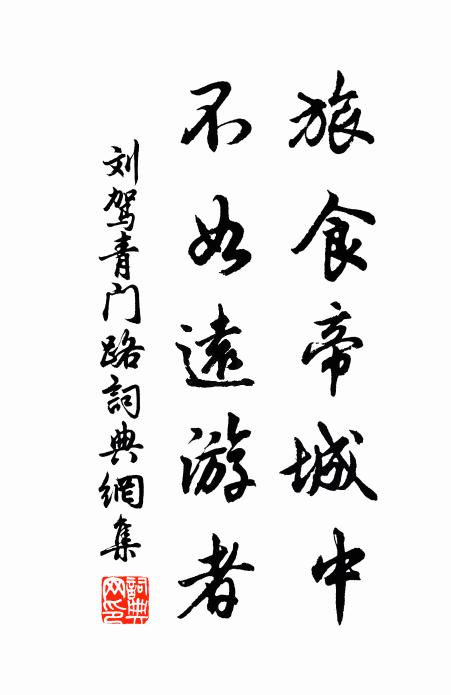 旅食帝城中
不如遠游者
刘驾青门路詞典網集
詞典
网印